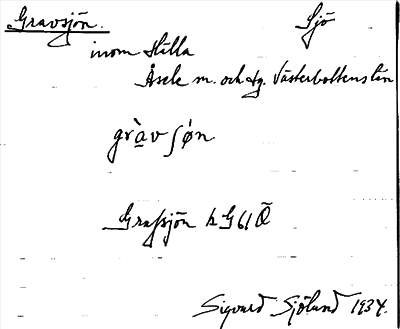 Gravsjön. Sjö
inom Hälla
Åsele m. och tg. Västerbottens län
gràv ʃǿn
Grafsjön k G61Ö
Sigvard Sjölund 1934.